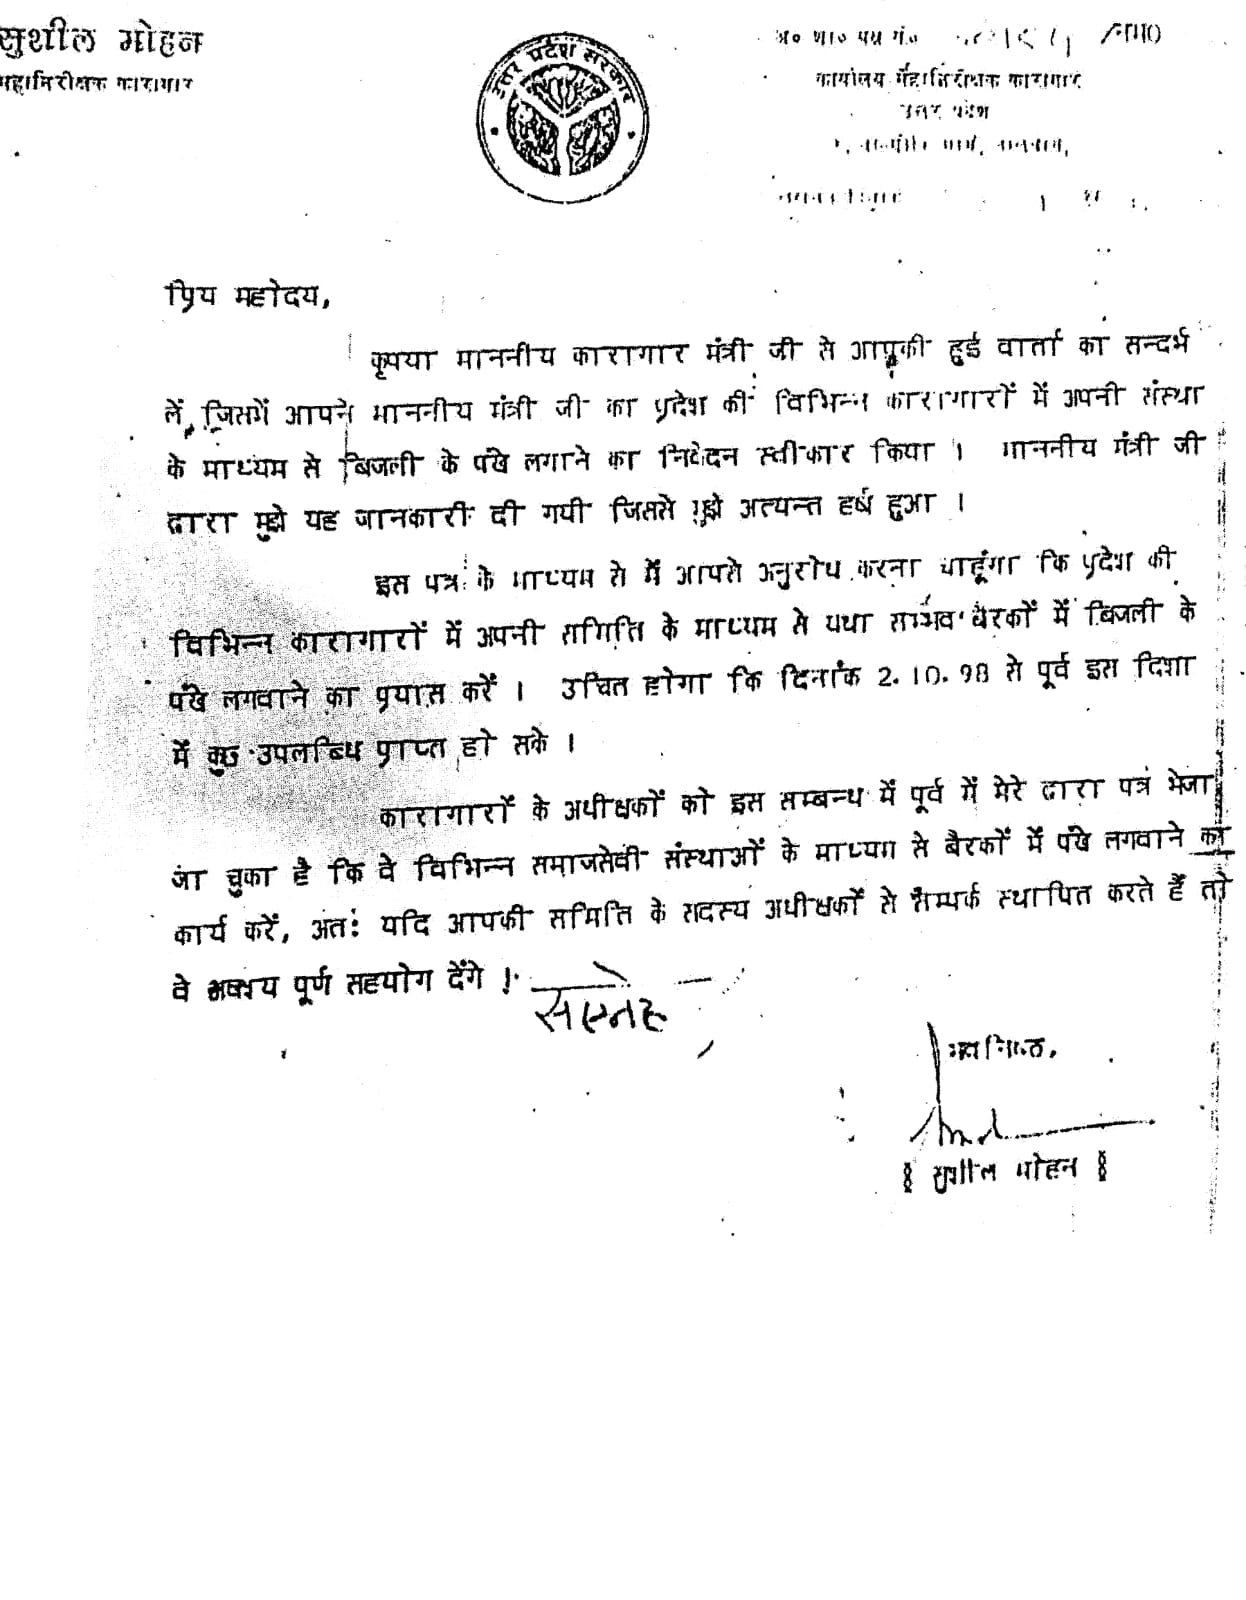 सुशील मोहन
महानिरीक्षक कारागार
उत्तर प्रदेश सरकार
अ० शा० पत्र सं०
कार्यालय महानिरीक्षक कारागार
उत्तर प्रदेश
प्रिय महोदय,
कृपया माननीय कारागार मंत्री जी से आपकी हुई वार्ता का सन्दर्भ
लें, जिसमें आपने माननीय मंत्री जी का प्रदेश की विभिन्न कारागारों में अपनी संस्था
के माध्यम से बिजली के पंखे लगाने का निवेदन स्वीकार किया । माननीय मंत्री जी
द्वारा मुझे यह जानकारी दी गयी जिससे मुझे अत्यन्त हर्ष हुआ ।
इस पत्र के माध्यम से मैं आपसे अनुरोध करना चाहूंगा कि प्रदेश की
विभिन्न कारागारों में अपनी समिति के माध्यम से यथा सम्भव बैरकों में बिजली के
पंखे लगवाने का प्रयास करें । उचित होगा कि दिनांक 2.10.98 से पूर्व इस दिशा
में कुछ उपलब्धि प्राप्त हो सके ।
कारागारों के अधीक्षकों को इस सम्बन्ध में पूर्व में मेरे द्वारा पत्र भेजा
जा चुका है कि वे विभिन्न समाजसेवी संस्थाओं के माध्यम से बैरकों में पंखे लगवाने का
कार्य करें, अतः यदि आपकी समिति के सदस्य अधीक्षकों से सम्पर्क स्थापित करते हैं तो
वे अवश्य पूर्ण सहयोग देंगे ।
सस्नेह
भवनिष्ठ,
( सुशील मोहन )